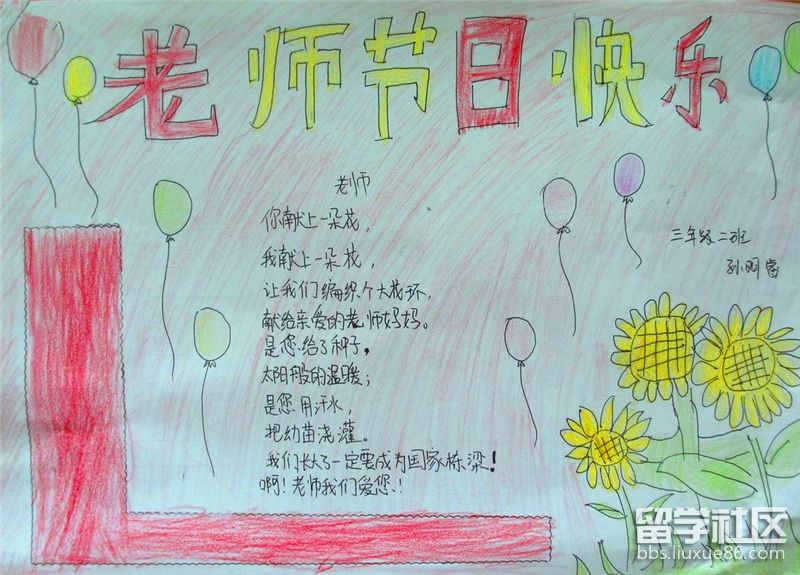 老师节日快乐
老师
你献上一朵花,
我献上一朵花,
让我们编织个大花环,
献给亲爱的老师妈妈。
是您给了种子,
太阳般的温暖;
是您用汗水,
把幼苗浇灌。
我们长大了一定要成为国家栋梁!
啊!老师我们爱您!
三年级二班
孙明睿
留学社区
bbs.liuxue86.com